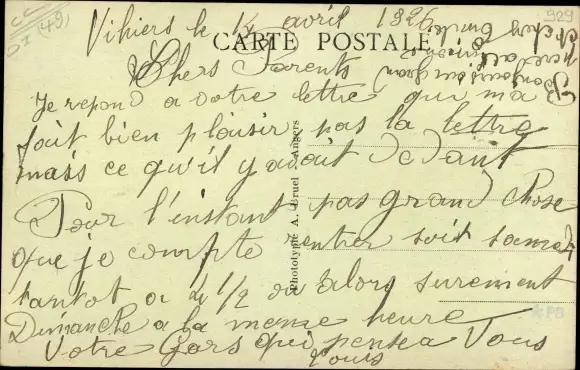 Vihiers le 14 avril 1926
CARTE POSTALE
Chers Parents
Je repond a votre lettre qui ma
fait bien plaisir pas la lettre
mais ce qu'il y avait dedant
Pour l'instant pas grand chose
que je compte rentrer soit samedi
tantot a 4 1/2 ou alors surement
Dimanche a la meme heure
Votre Gars qui pensea Vous
Tours
Phototypie A. Bruel Angers
929
(49)